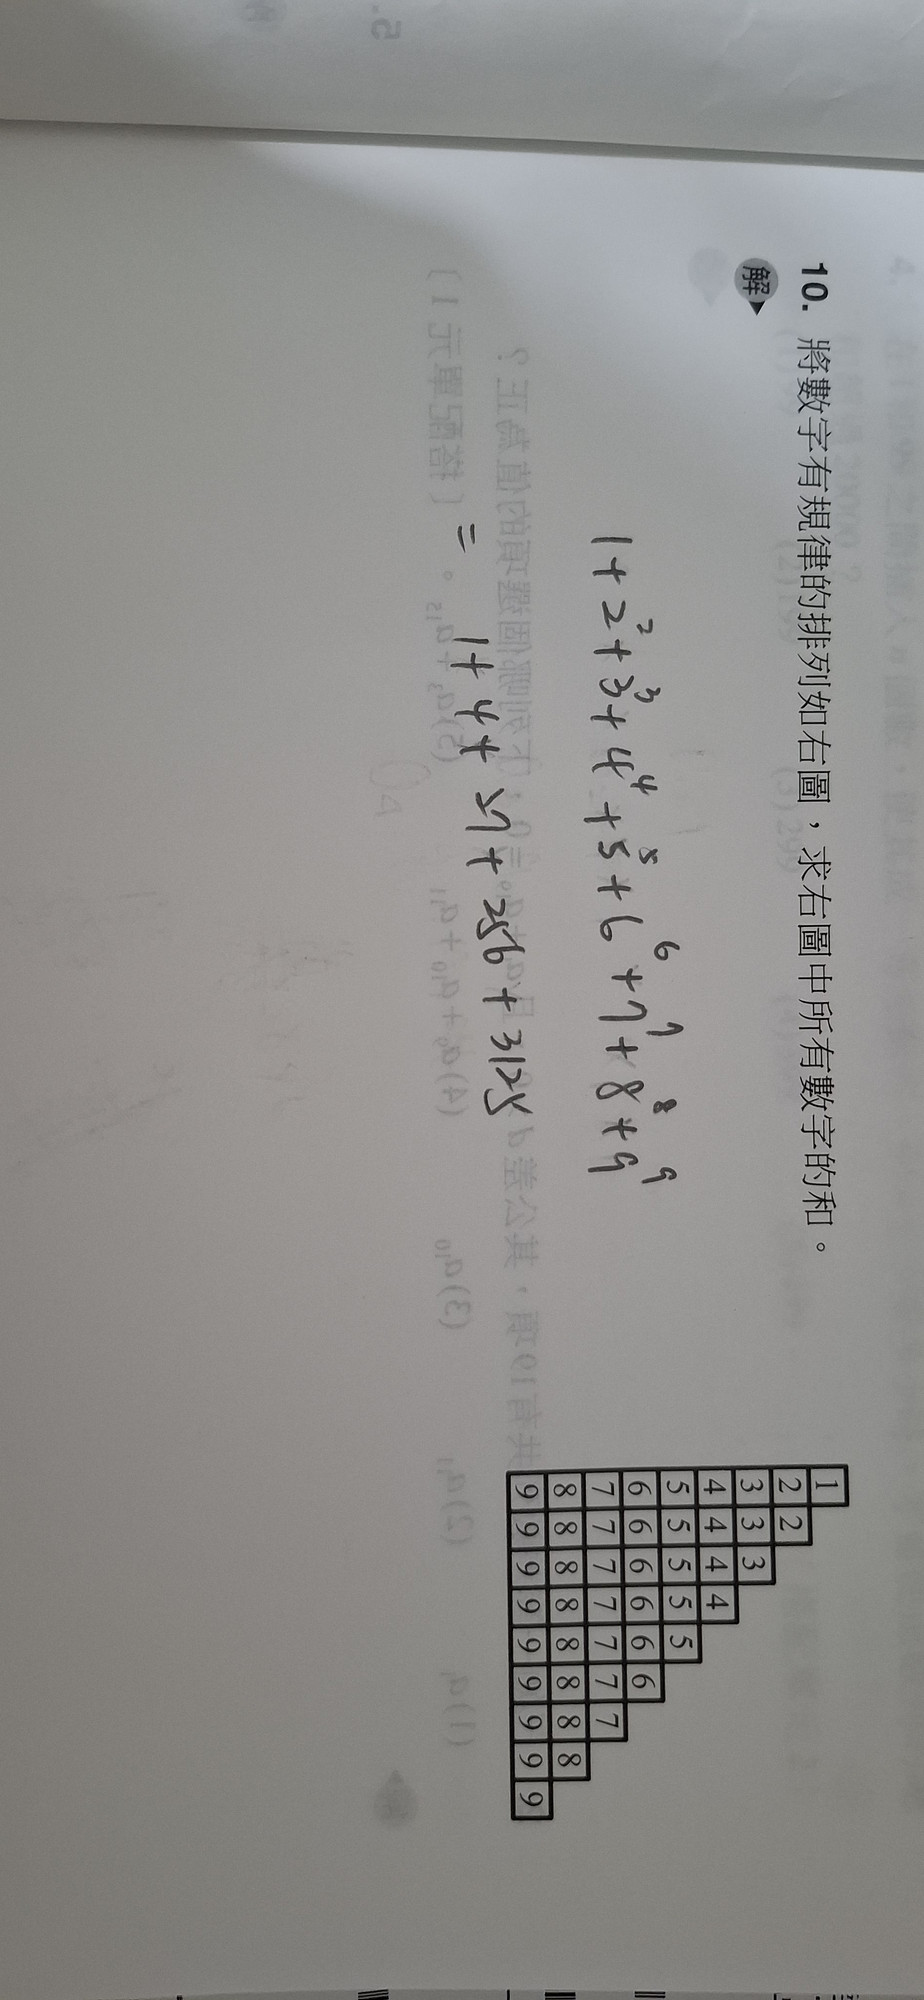 10. 將數字有規律的排列如右圖，求右圖中所有數字的和。
解
1 + 2² + 3³ + 4⁴ + 5⁵ + 6⁶ + 7⁷ + 8⁸ + 9⁹
= 1 + 4 + 27 + 256 + 3125
1
2 2
3 3 3
4 4 4 4
5 5 5 5 5
6 6 6 6 6 6
7 7 7 7 7 7 7
8 8 8 8 8 8 8 8
9 9 9 9 9 9 9 9 9